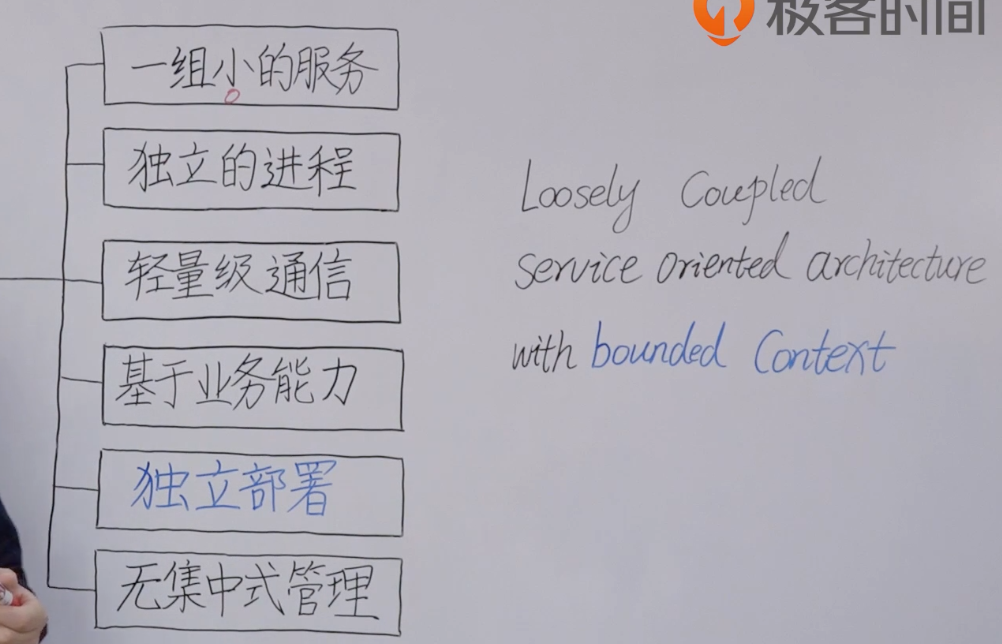 极客时间
一组小的服务
独立的进程
轻量级通信
基于业务能力
独立部署
无集中式管理
Loosely Coupled
service oriented architecture
with bounded Context